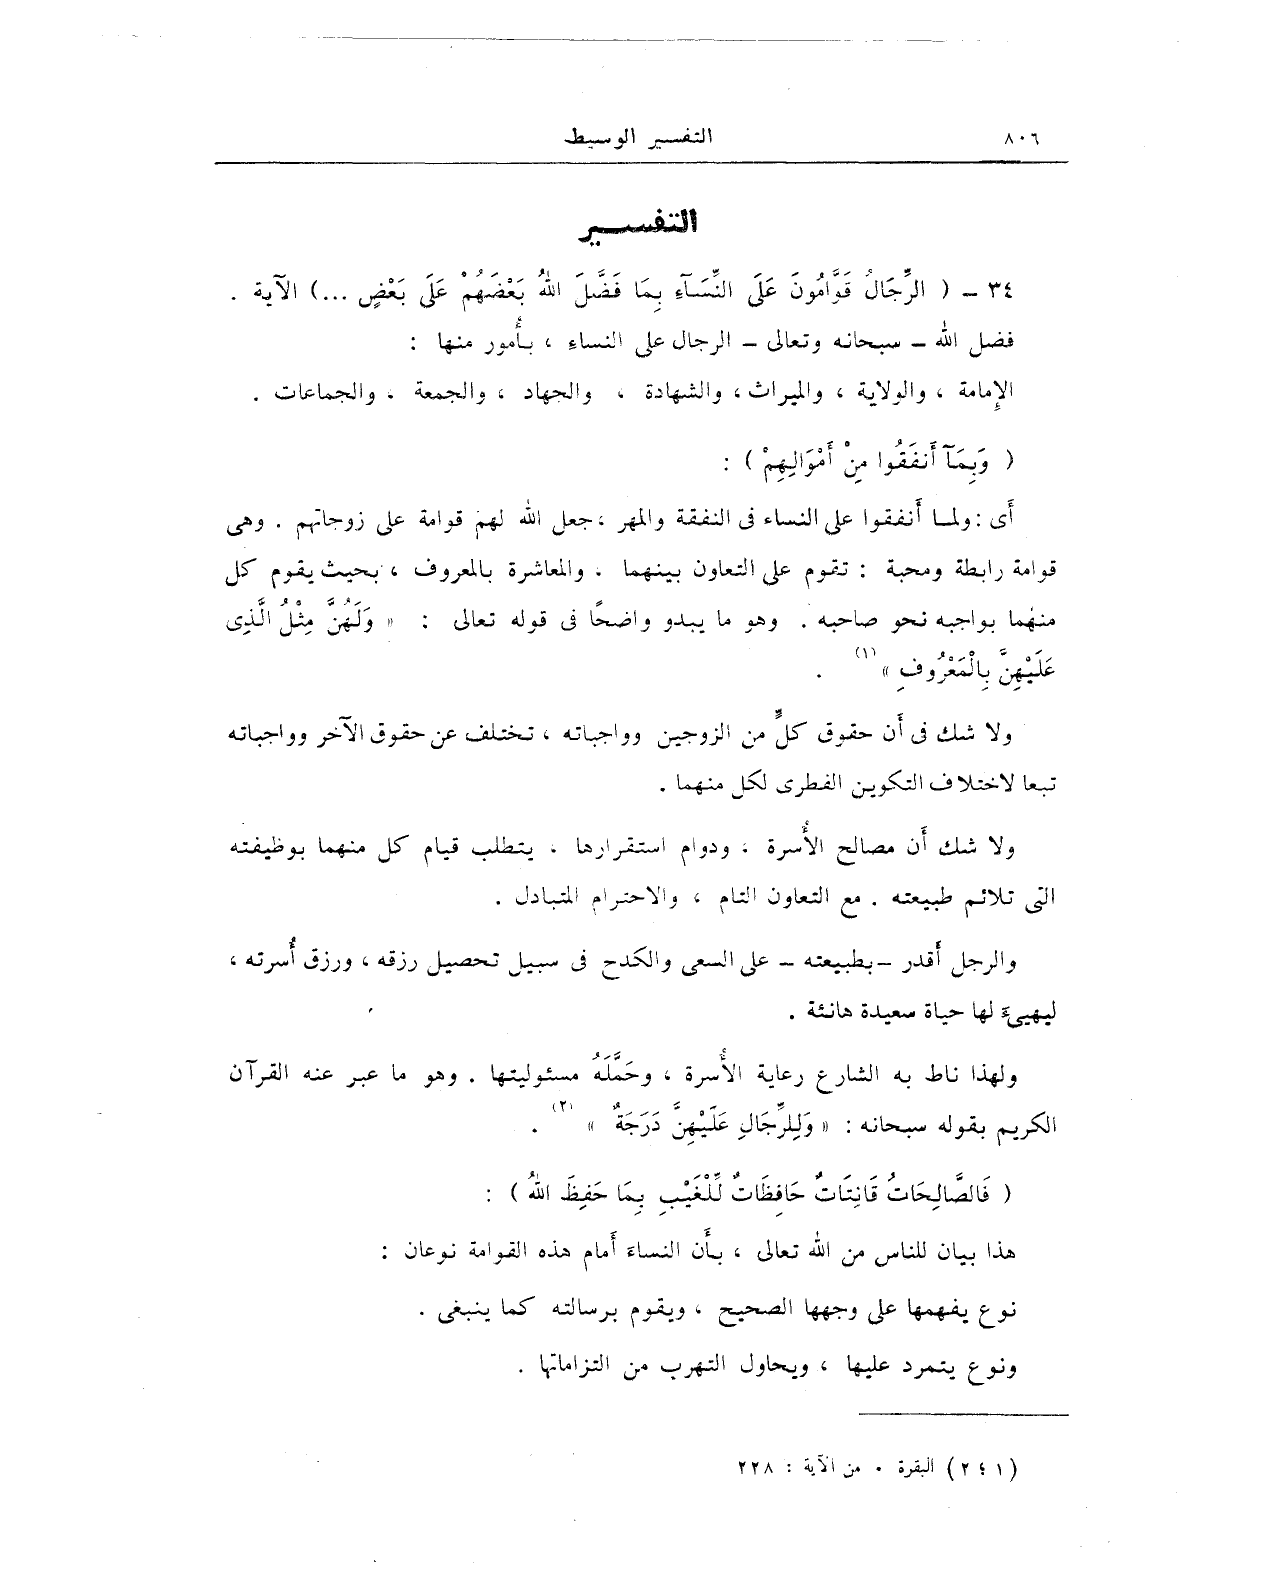 ٨٠٦
التفسير الوسيط
التفسير
٣٤ – ( الرِّجَالُ قَوَّامُونَ عَلَى النِّسَآءِ بِمَا فَضَّلَ اللهُ بَعْضَهُمْ عَلَى بَعْضٍ ...) الآية .
فضل الله – سبحانه وتعالى – الرجال على النساءِ ، بأُمور منها :
الإِمامة ، والولاية ، والميراث ، والشهادة ، والجهاد ، والجمعة ، والجماعات .
( وَبِمَآ أَنفَقُوا مِنْ أَمْوَالِهِمْ ) :
أَى : ولما أَنفقوا على النساء فى النفقة والمهر ، جعل الله لهم قوامة على زوجاتهم . وهى
قوامة رابطة ومحبة : تقوم على التعاون بينهما . والمعاشرة بالمعروف ، بحيث يقوم كل
منهما بواجبه نحو صاحبه . وهو ما يبدو واضحًا فى قوله تعالى : « وَلَهُنَّ مِثْلُ الَّذِى
عَلَيْهِنَّ بِالْمَعْرُوفِ » (١) .
ولا شك فى أَن حقوق كلٍّ من الزوجين وواجباته ، تختلف عن حقوق الآخر وواجباته
تبعا لاختلاف التكوين الفطرى لكل منهما .
ولا شك أَن مصالح الأُسرة ، ودوام استقرارها ، يتطلب قيام كل منهما بوظيفته
التى تلائم طبيعته . مع التعاون التام ، والاحترام المتبادل .
والرجل أَقدر – بطبيعته – على السعى والكدح فى سبيل تحصيل رزقه ، ورزق أُسرته ،
ليهيئَ لها حياة سعيدة هانئة .
ولهذا ناط به الشارع رعاية الأُسرة ، وحَمَّلَهُ مسئوليتها . وهو ما عبر عنه القرآن
الكريم بقوله سبحانه : « وَلِلرِّجَالِ عَلَيْهِنَّ دَرَجَةٌ » (٢) .
( فَالصَّالِحَاتُ قَانِتَاتٌ حَافِظَاتٌ لِّلْغَيْبِ بِمَا حَفِظَ اللهُ ) :
هذا بيان للناس من الله تعالى ، بأَن النساءَ أَمام هذه القوامة نوعان :
نوع يفهمها على وجهها الصحيح ، ويقوم برسالته كما ينبغى .
ونوع يتمرد عليها ، ويحاول التهرب من التزاماتها .
(١ ، ٢) البقرة . من الآية : ٢٢٨